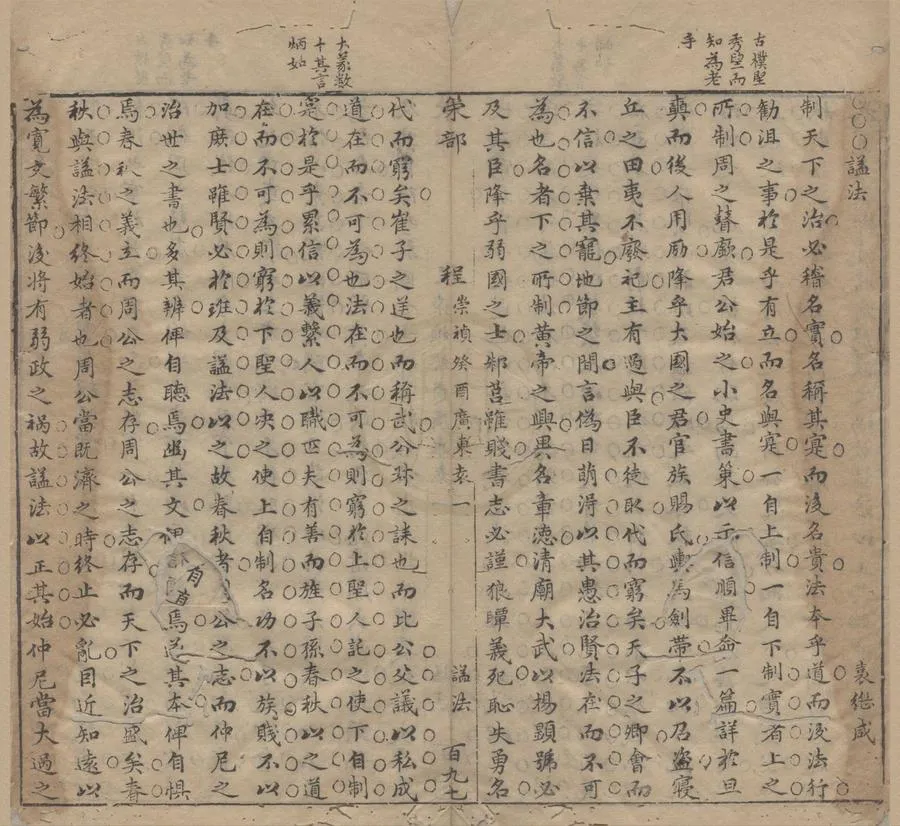 古樸堅
秀望而
知為老
手
大篆數
十其言
炳如
謚法
袁繼咸
制天下之治必稽名實名稱其寔而後名貴法本乎道而後法行
勸沮之事於是乎有立而名與寔一自上制一自下制實者上之
所制周之瞽獻君公始之小史書策以示信順畢命一篇詳於旦
奭而後人用勵降乎大國之君官族賜氏輿馬劍帶不以召盜寢
丘之田夷不廢祀主有過與臣不徒取代而窮矣天子之卿會而
不信以棄其寵地節之間言偽日萌淂以其愚治賢法在而不可
為也名者下之所制黃帝之興異名章德清廟大武以揚顯號必
及其臣降乎弱國之士邾莒雖賤書志必謹狼瞫義死恥失勇名
榮部
程
崇禎癸酉廣東袁
一
謚法
百九七
代而窮矣崔子之逆也而稱武公孫之誅也而比公父議以私成
道在而不可為也法在而不可為則窮於上聖人託之使下自制
寔於是乎累信以義繫人以職匹夫有善而旌子孫春秋以之道
在而不可為則窮於下聖人央之使上自制名功不以族賤不以
加庶士雖賢必於班及謚法以之故春秋者 公之志而仲尼之
治世之書也多其辨俾自聽焉幽其文 焉 其本俾自惧
有
有
焉春秋之義立而周公之志存周公之志存而天下之治盛矣春
秋與謚法相終始者也周公當既濟之時終止必亂目近知遠以
為寬文繁節後將有弱政之禍故謚法以正其始仲尼當大過之